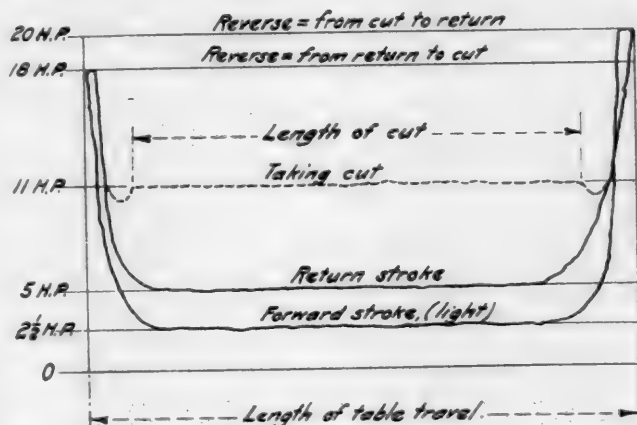 Reverse = from cut to return
20 H.P.
Reverse = from return to cut
18 H.P.
Length of cut
Taking cut
11 H.P.
Return stroke
5 H.P.
Forward stroke, (light)
2½ H.P.
0
Length of table travel